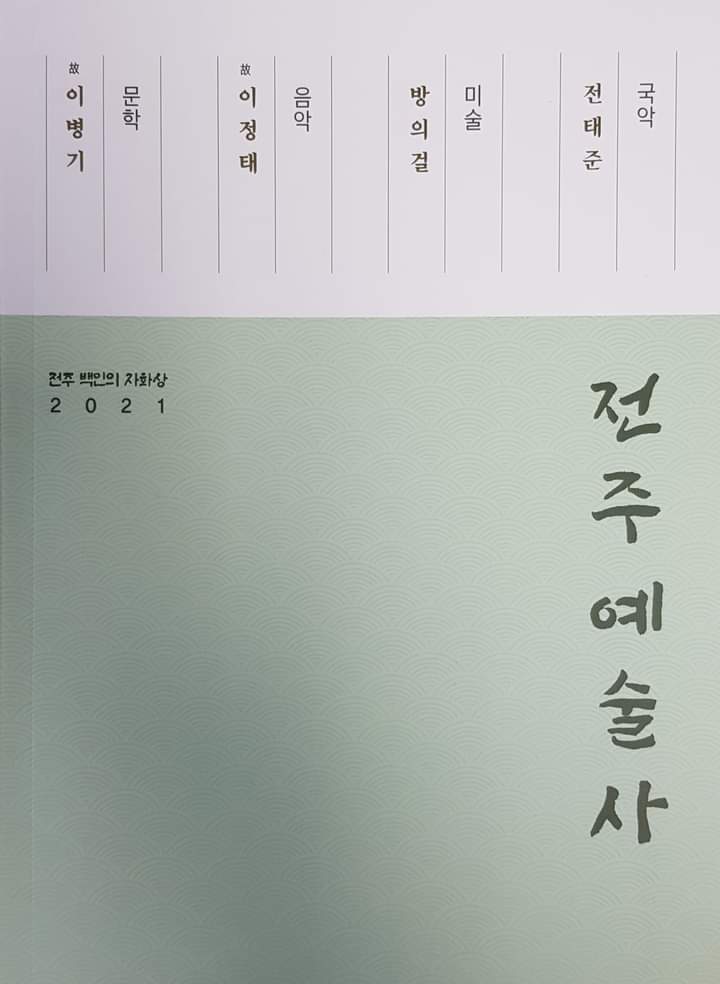 국악
전태준
미술
방의걸
음악
故 이정태
문학
故 이병기
전주 백인의 자화상
2021
전주예술사